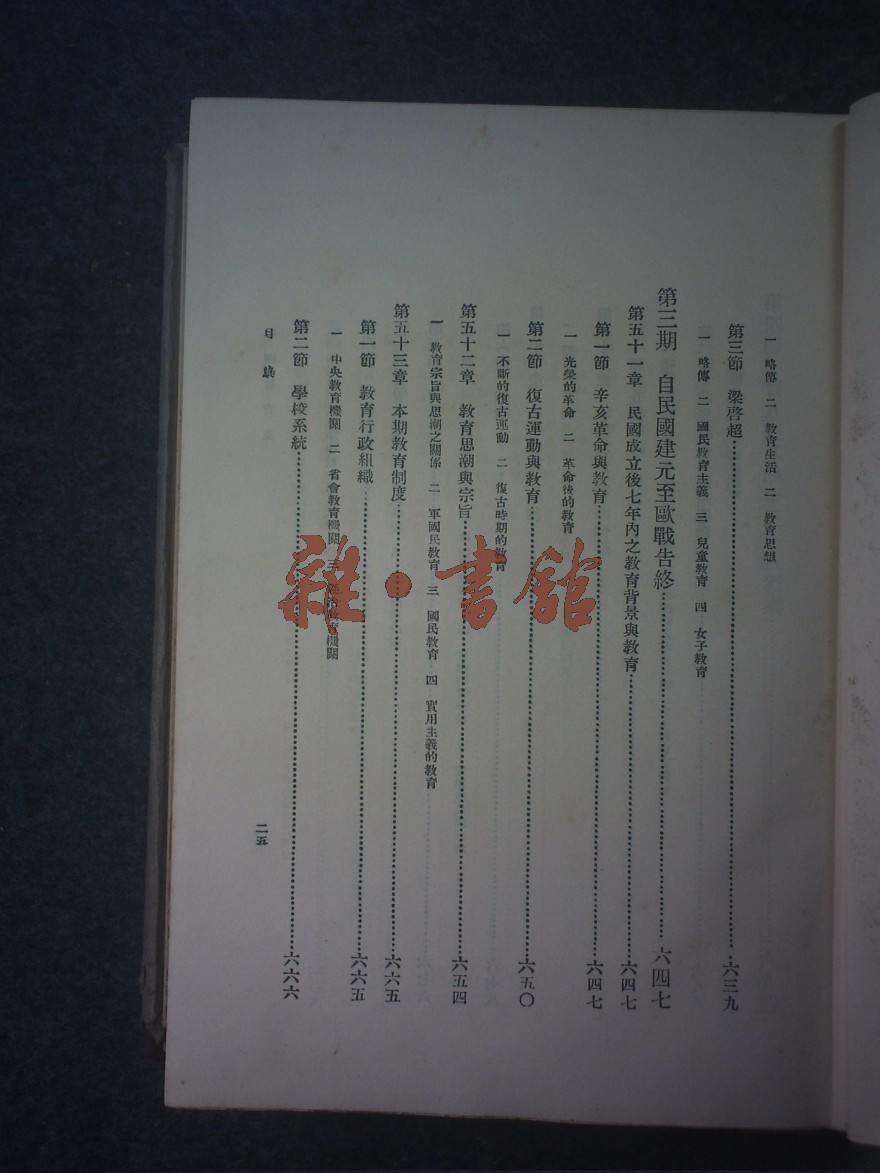 一 略傳 二 教育生活 二 教育思想
第三節 梁啓超……六三九
一 略傳 二 國民教育主義 三 兒童教育 四 女子教育
第三期 自民國建元至歐戰告終……六四七
第五十一章 民國成立後七年內之教育背景與教育……六四七
第一節 辛亥革命與教育……六四七
一 光榮的革命 二 革命後的教育
第二節 復古運動與教育……六五〇
一 不斷的復古運動 二 復古時期的教育
第五十二章 教育思潮與宗旨……六五四
一 教育宗旨與思潮之關係 二 軍國民教育 三 國民教育 四 實用主義的教育
第五十三章 本期教育制度……六六五
第一節 教育行政組織……六六五
一 中央教育機關 二 省會教育機關 三 教育機關
第二節 學校系統……六六六
目錄
二五
雜·書館